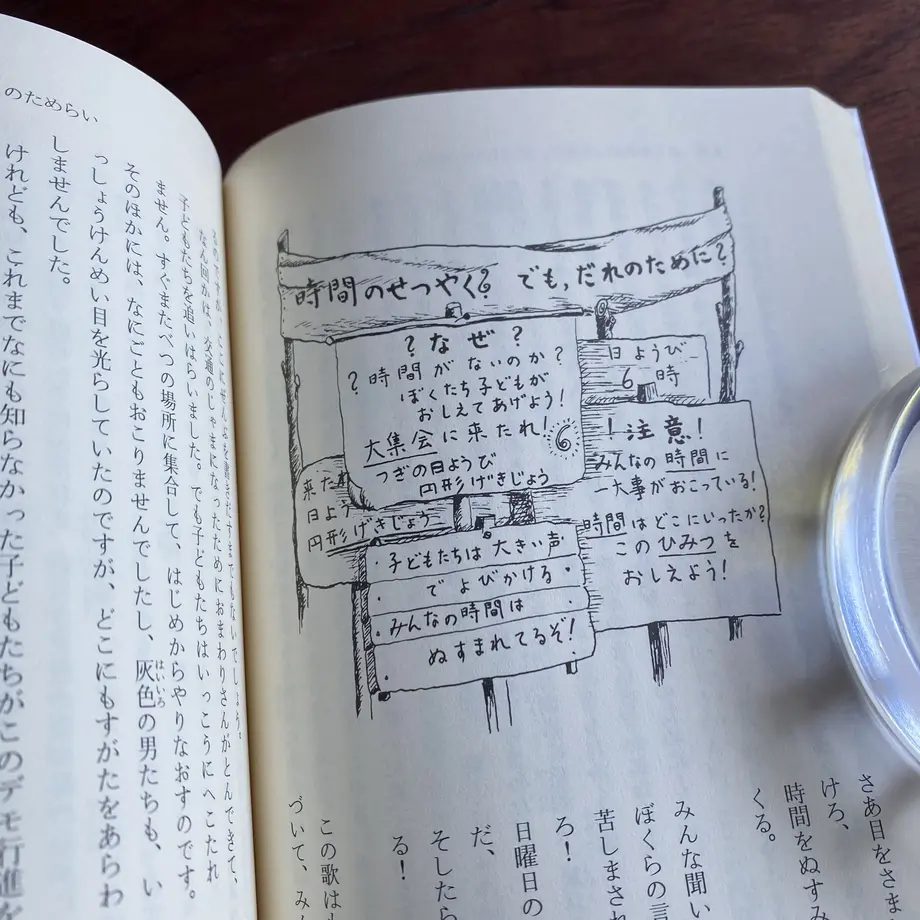 時間のせつやく？ でも，だれのために？
？なぜ？
？時間がないのか？
ぼくたち子どもが
おしえてあげよう！
大集会に来たれ！
つぎの日ようび
円形げきじょう
6
日ようび
6時
！注意！
みんなの時間に
一大事がおこっている！
時間はどこにいったか？
このひみつを
おしえよう！
来たれ
日よう
円形げきじょう
子どもたちは大きい声
でよびかける
みんなの時間は
ぬすまれてるぞ！
さあ目をさま
けろ、
時間をぬすみ
くる。
みんな聞い
ぼくらの言
苦しまされ
ろ！
日曜日の
だ、
そしたら
る！
この歌は
づいて、みん
のためらい
るのですが、ここにぜんぶを書きだすまでもないでしょう。
なん回かは、交通のじゃまになったためにおまわりさんがとんできて、
子どもたちを追いはらいました。でも子どもたちはいっこうにへこたれ
ません。すぐまたべつの場所に集合して、はじめからやりなおすのです。
そのほかには、なにごともおこりませんでしたし、灰色の男たちも、い
はいいろ
っしょうけんめい目を光らしていたのですが、どこにもすがたをあらわ
しませんでした。
けれども、これまでなにも知らなかった子どもたちがこのデモ行進を